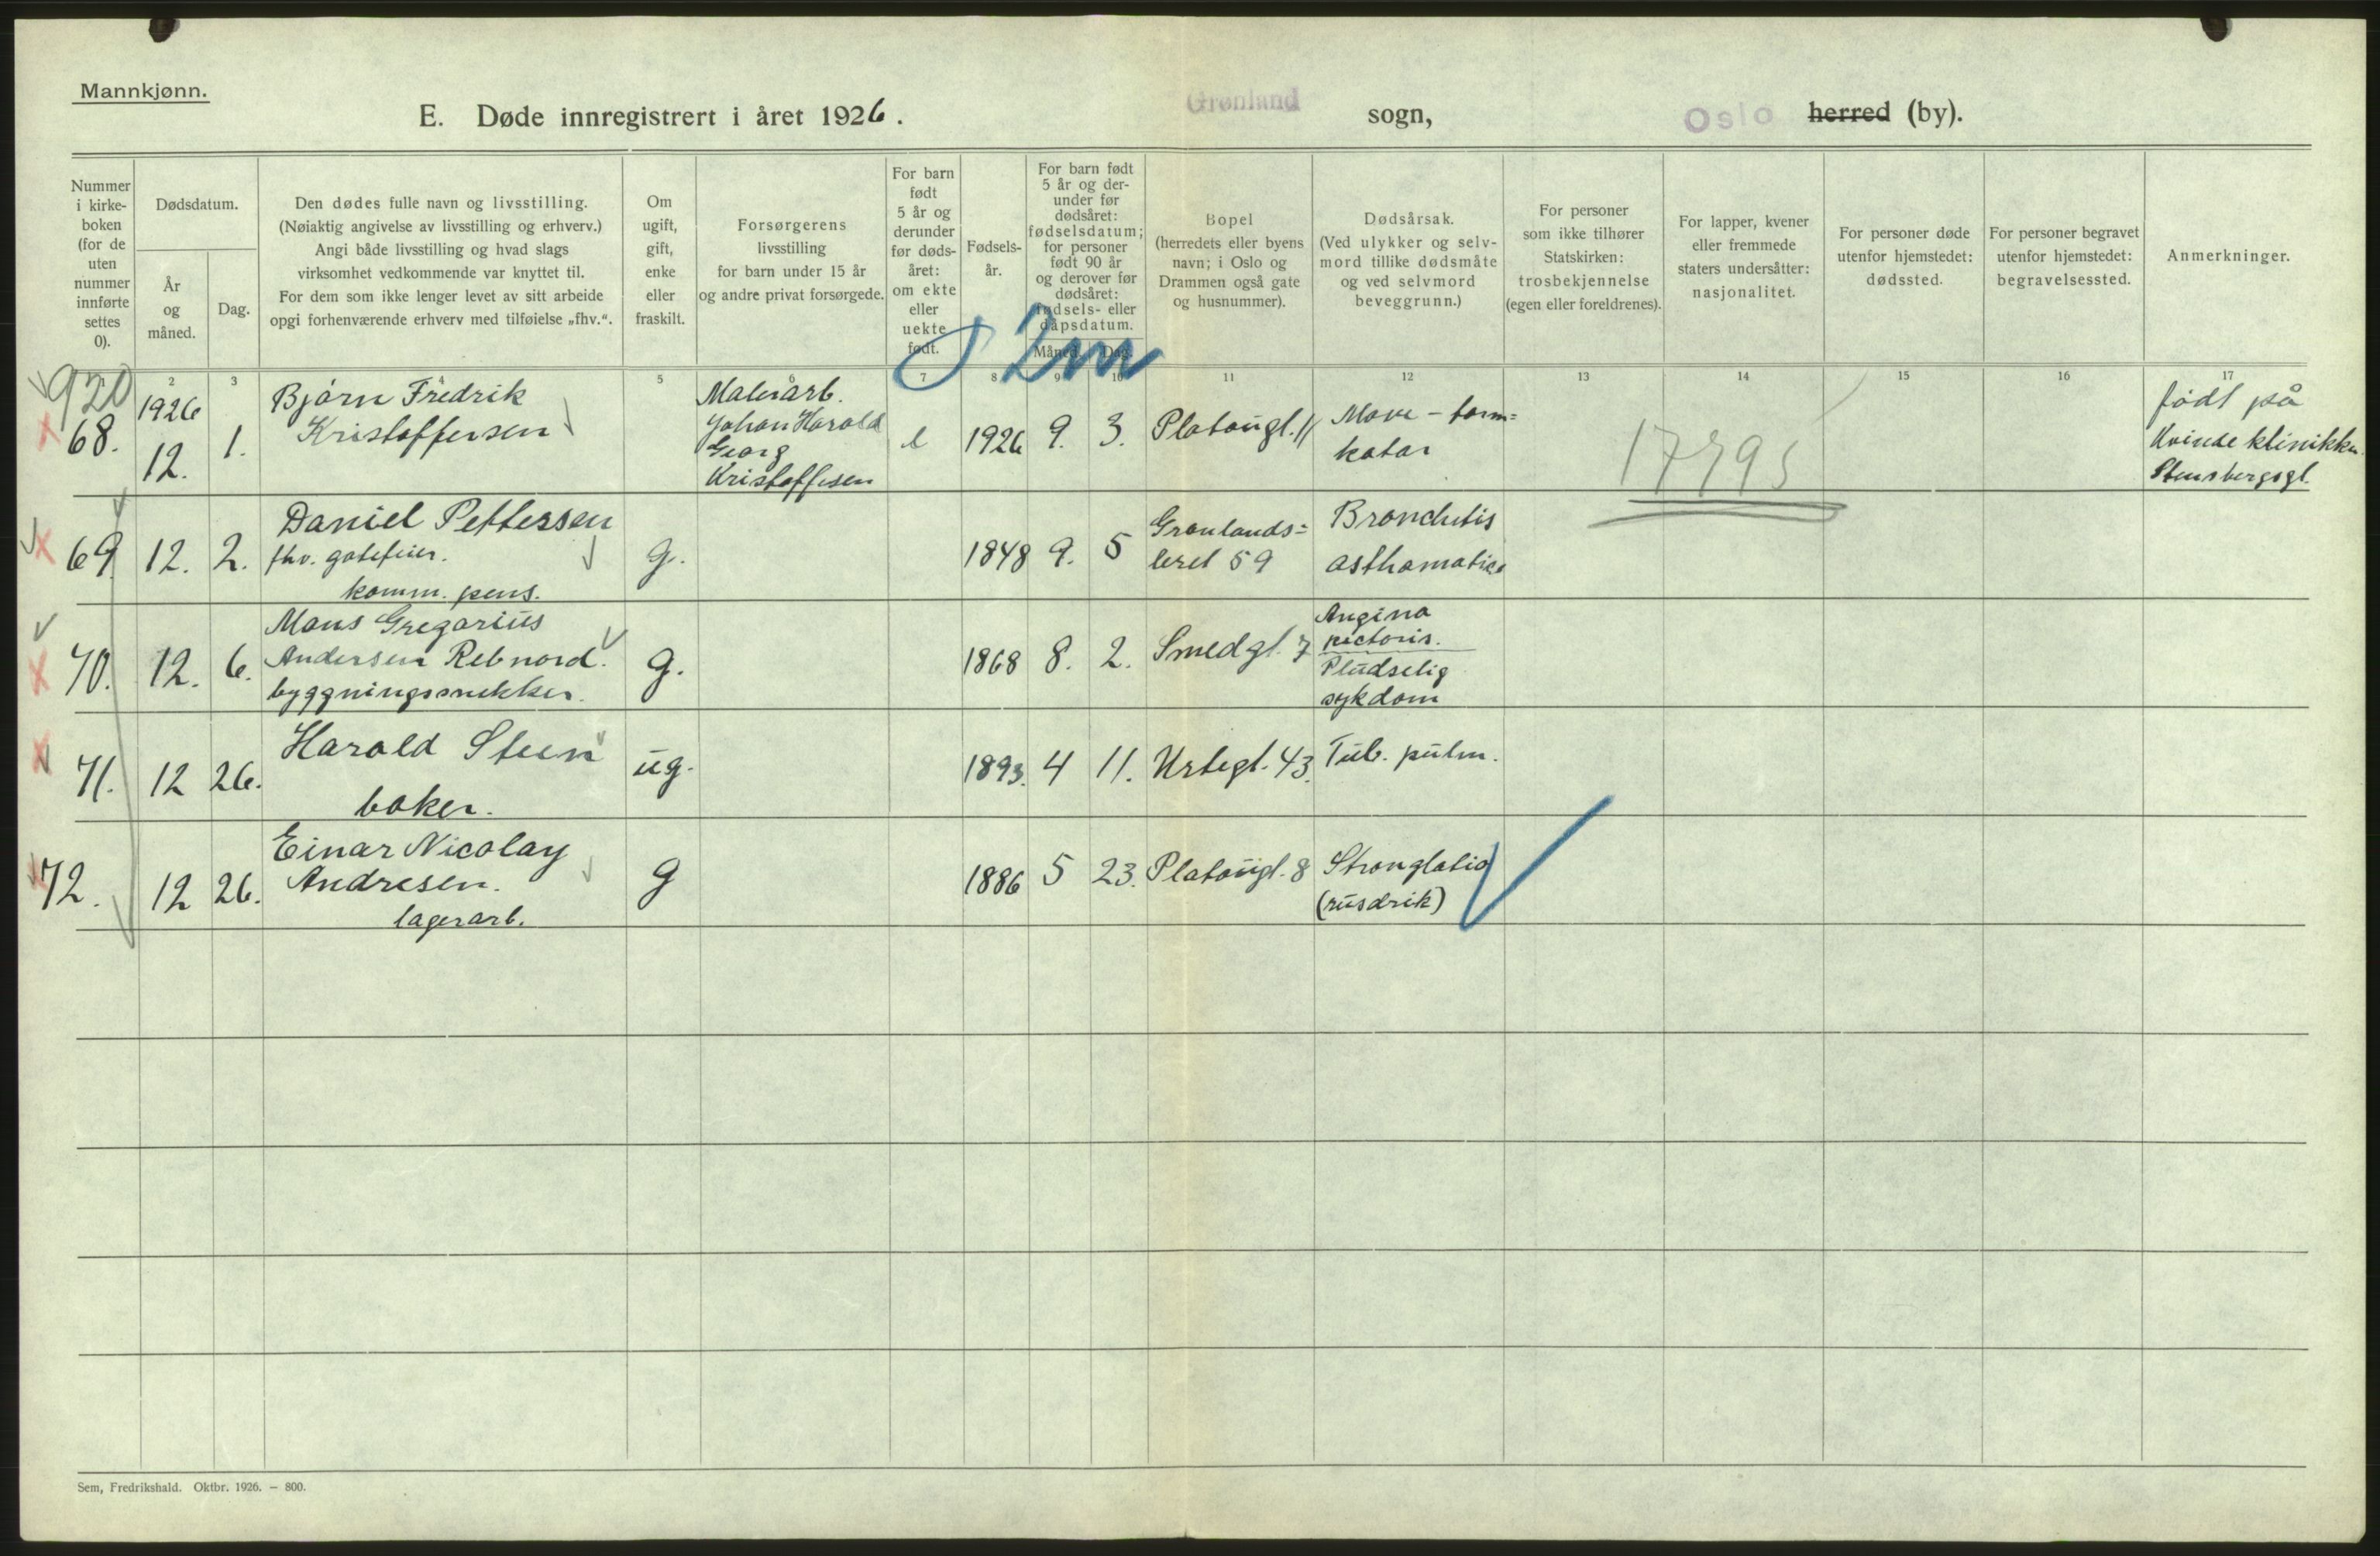 Mannkjønn.
E. Døde innregistrert i året 1926. Grønland sogn, Oslo herred (by).
Nummer i kirkeboken (for de uten nummer innførte settes 0).
Dødsdatum.
År og måned.
Dag.
Den dødes fulle navn og livsstilling.
(Nøiaktig angivelse av livsstilling og erhverv.)
Angi både livsstilling og hvad slags
virksomhet vedkommende var knyttet til.
For dem som ikke lenger levet av sitt arbeide
opgi forhenværende erhverv med tilføielse „fhv.“.
Om
ugift,
gift,
enke
eller
fraskilt.
Forsørgerens
livsstilling
for barn under 15 år
og andre privat forsørgede.
For barn
født
5 år og
derunder
før døds-
året:
om ekte
eller
uekte
født.
Fødsels-
år.
For barn født
5 år og der-
under før
dødsåret:
fødselsdatum;
for personer
født 90 år
og derover før
dødsåret:
fødsels- eller
dåpsdatum.
Måned. Dag.
Bopel
(herredets eller byens
navn; i Oslo og
Drammen også gate
og husnummer).
Dødsårsak.
(Ved ulykker og selv-
mord tillike dødsmåte
og ved selvmord
beveggrunn.)
For personer
som ikke tilhører
Statskirken:
trosbekjennelse
(egen eller foreldrenes).
For lapper, kvener
eller fremmede
staters undersåtter:
nasjonalitet.
For personer døde
utenfor hjemstedet:
dødssted.
For personer begravet
utenfor hjemstedet:
begravelsessted.
Anmerkninger.
2m
2 3 5 6 7 8 9 10 11 12 13 14 15 16 17
920
68. 1926 12. 1. Bjørn Fredrik
Kristoffersen
Malerarb.
Johan Harald
Georg
Kristoffesen
e 1926 9. 3. Platougt. 11
Mave-tarm=
katar
17795
født på
Kvindeklinikken
Stensbergsgt.
69. 12. 2. Daniel Pettersen
fhv. gatefeier.
komm. pens.
g. 1848 9. 5 Grønlands=
leret 59
Bronchitis
asthamatica
70. 12. 6. Mons Gregorius
Andersen Rebnord.
byggningssnekker.
g. 1868 8. 2. Smedgt. 7
Angina
pectoris.
Pludselig
sykdom
71. 12 26. Harald Steen
baker.
ug. 1893. 4 11. Urtegt. 43. Tub. pulm.
72. 12 26. Einar Nicolay
Andresen.
lagerarb.
g 1886 5 23. Platougt. 8 Stranglatio
(rusdrik)
Sem, Fredrikshald. Oktbr. 1926. – 800.